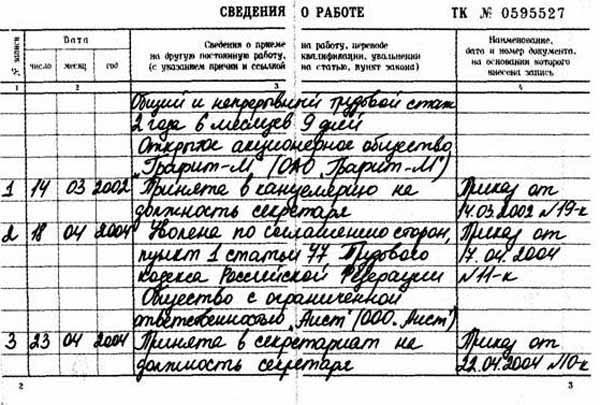 СВЕДЕНИЯ О РАБОТЕ ТК № 0595527
№ записи
Дата
число месяц год
Сведения о приеме на работу, переводе
на другую постоянную работу, квалификации, увольнении
(с указанием причин и ссылкой на статью, пункт закона)
Наименование,
дата и номер документа,
на основании которого
внесена запись
1 2 3 4
Общий и непрерывный трудовой стаж
2 года 6 месяцев 9 дней
Открытое акционерное общество
"Гранит-М" (ОАО "Гранит-М")
1 14 03 2002 Принята в канцелярию на Приказ от
должность секретаря 14.03.2002 №19-к
2 18 04 2004 Уволена по соглашению сторон, Приказ от
пункт 1 статьи 77 Трудового 17.04.2004
кодекса Российской Федерации №11-к
Общество с ограниченной
ответственностью "Аист" (ООО "Аист")
3 23 04 2004 Принята в секретариат на Приказ от
должность секретаря 22.04.2004 №10-к
2 3